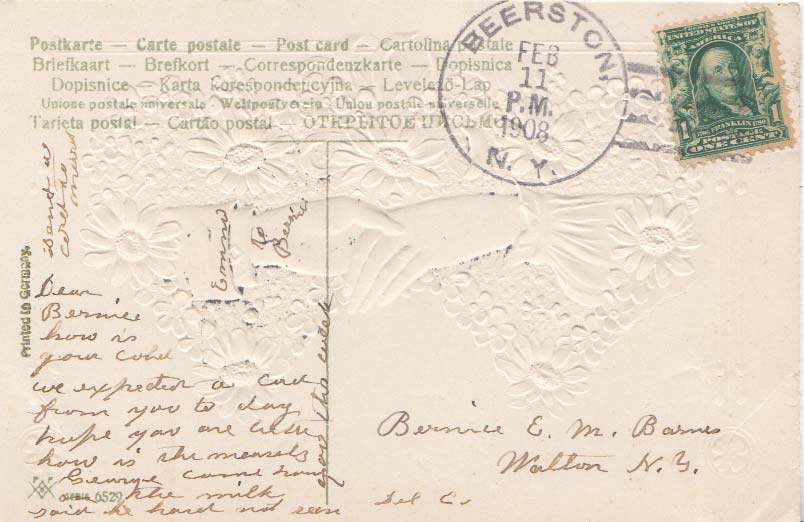 Postkarte — Carte postale — Post card — Cartolina postale
Briefkaart — Brefkort — Correspondenzkarte — Dopisnica
Dopisnice — Karta korespondencyjna — Levelező-Lap
Unione postale universale Weltpostverein Union postale universelle
Tarjeta postal — Cartão postal — ОТКРЫТОЕ ПИСЬМО
BEERSTON,
FEB
11
P.M.
1908
N. Y.
UNITED STATES OF
AMERICA
1
FRANKLIN
POSTAGE
ONE CENT
1
Send a
card to
Emma
To
Bernice
Printed in Germany.
Dear
Bernice
how is
your cold
we expected a card
from you to day
hope you are better
how is the measels
George came from
the milk
said he had not seen
you this week
6529
Bernice E. M. Barnes
Walton N.Y.
Del Co.